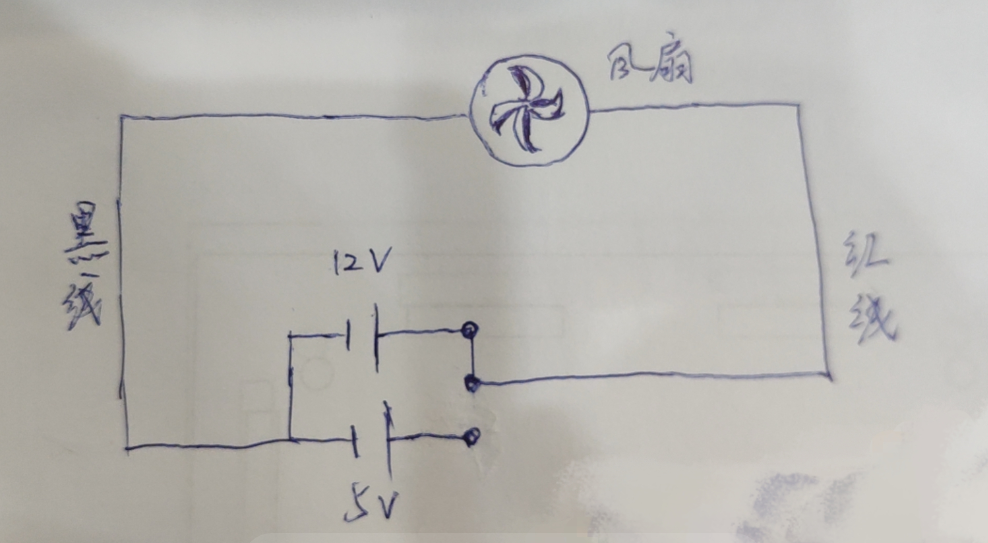 风扇
黑线
12V
红线
5V